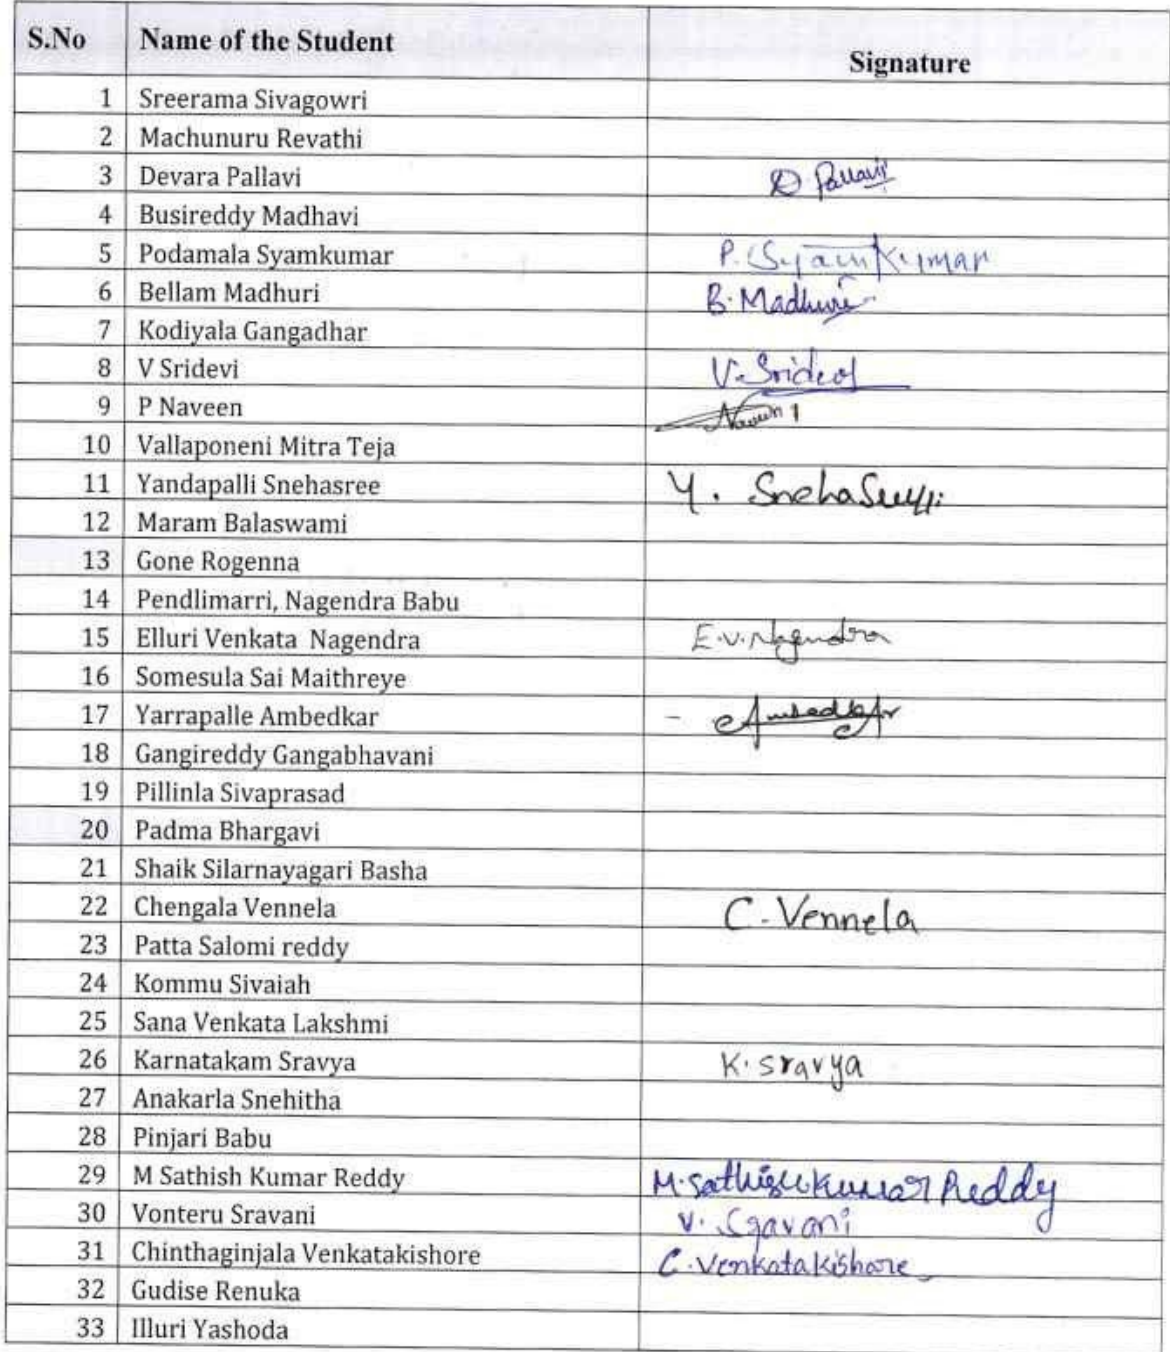 S.No Name of the Student Signature
1 Sreerama Sivagowri
2 Machunuru Revathi
3 Devara Pallavi D. Pallavi
4 Busireddy Madhavi
5 Podamala Syamkumar P. Syam Kumar
6 Bellam Madhuri B. Madhuri
7 Kodiyala Gangadhar
8 V Sridevi V. Sridevi
9 P Naveen Naveen
10 Vallaponeni Mitra Teja
11 Yandapalli Snehasree Y. Snehasree
12 Maram Balaswami
13 Gone Rogenna
14 Pendlimarri, Nagendra Babu
15 Elluri Venkata Nagendra E.V. Nagendra
16 Somesula Sai Maithreye
17 Yarrapalle Ambedkar Ambedkar
18 Gangireddy Gangabhavani
19 Pillinla Sivaprasad
20 Padma Bhargavi
21 Shaik Silarnayagari Basha
22 Chengala Vennela C. Vennela
23 Patta Salomi reddy
24 Kommu Sivaiah
25 Sana Venkata Lakshmi
26 Karnatakam Sravya K. Sravya
27 Anakarla Snehitha
28 Pinjari Babu
29 M Sathish Kumar Reddy M. Sathish Kumar Reddy
30 Vonteru Sravani V. Sravani
31 Chinthaginjala Venkatakishore C. Venkatakishore
32 Gudise Renuka
33 Illuri Yashoda